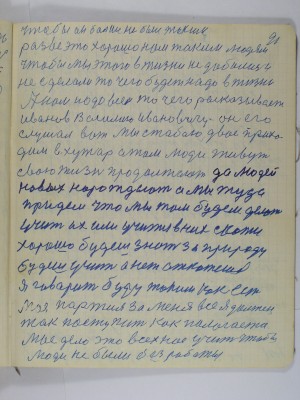 чтобы он были не был такими
разве это хорошо нам таким людям
чтобы мы этого в жизни не добались
не сделали то чего будет надо в жизни
И нам надо всем то чего рассказывает
иванов Василию ивановичу он его
слушал вот мы с табою двое прихо
дим в хутар а там люди живут
свою жизнь продалжают да людей
новых нарождают а мы туда
придем что мы там будем делат
учит их или учится в них сказти
хорошо будем знат за природу
будем учит а нет откажемся
я говарит буду таким как ест
моя партия за меня все я должен
так поступит как палогается
мые дело это всех нас учит чтобы
люди не были без работы